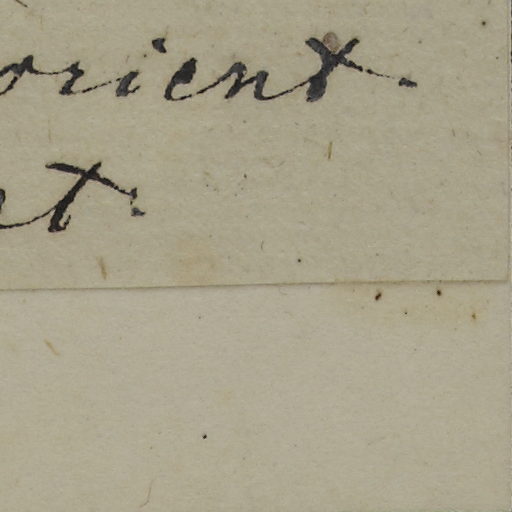 orient.
t.